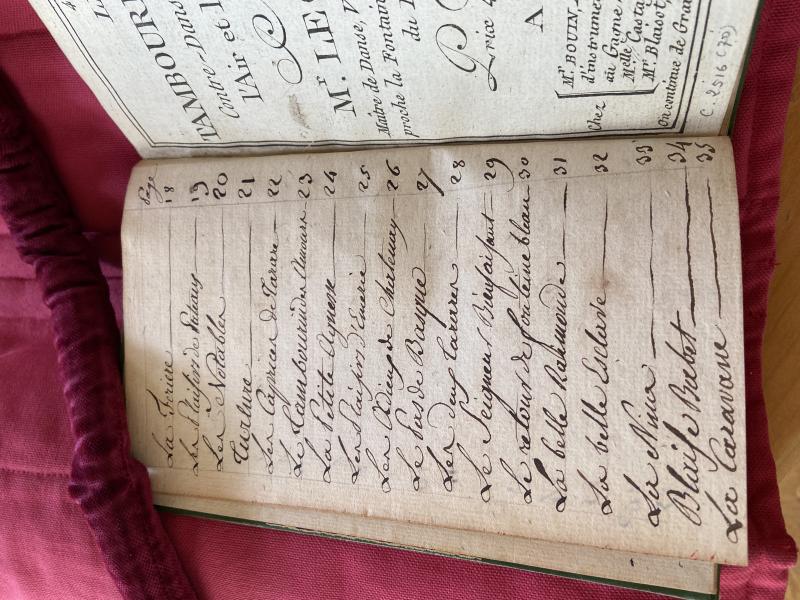 TAMBOURI
Contre-Dans
l'Air et l
Mr. LE
Maître de Danse, V
proche la Fontain
du
Prix 4
A
Chez
Mr. BOUIN,
d'instrumen
au Gigne
Melle Casta
Mr. Blaisot,
On continue de Gra
C. 2516 (70)
Page
La Ferine 18
Les Plaisirs de 19
Les Notables 20
Turlure 21
Les Caprices de Tarare 22
Le Tambourin des 23
La Petite Agnesse 24
Les Plaisirs d'Enerie 25
Les Adieux de Chatenay 26
Le Pas de Basque 27
Les deux Tarares 28
Le Seigneur Bienfaisant 29
Le retour de fontaine bleau 30
La belle Rasimonde 31
La belle Esclave 32
La Nina 33
Blaise Babet 34
La Caravane 35